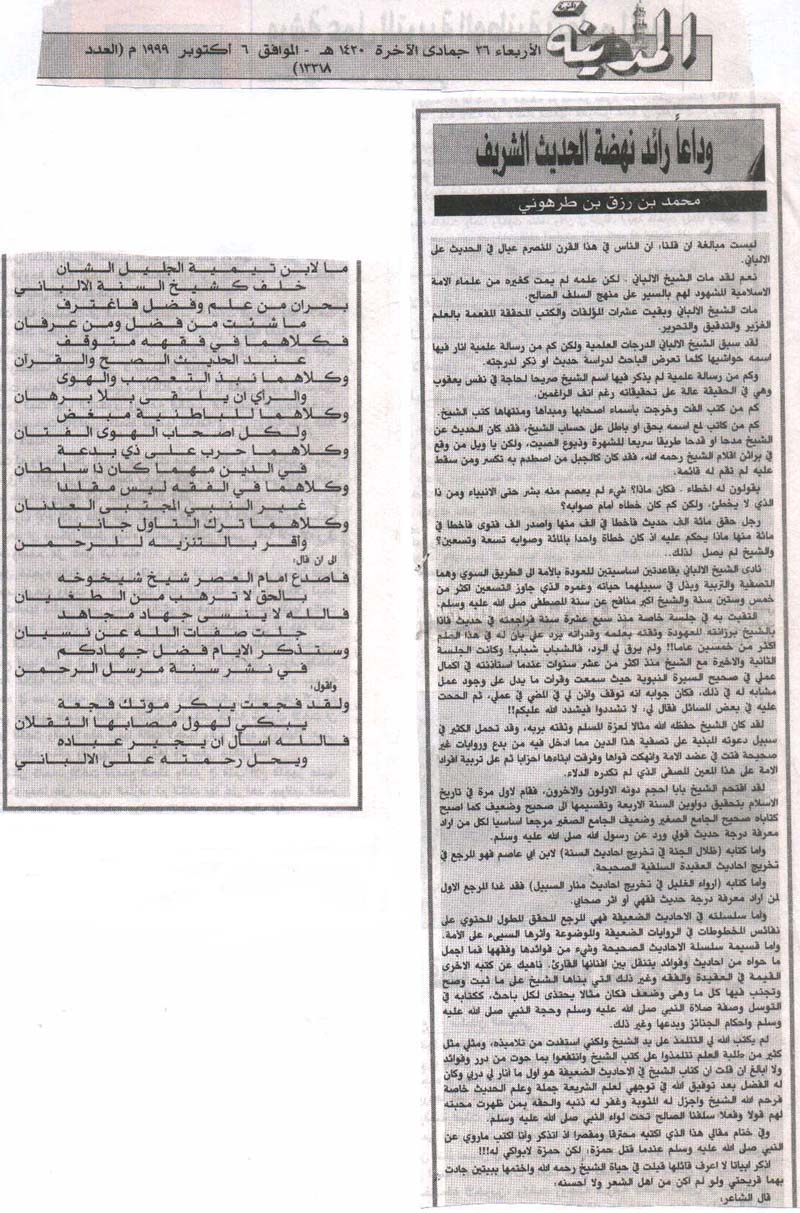 المدينة
الأربعاء ٢٦ جمادى الآخرة ١٤٢٠ هـ - الموافق ٦ أكتوبر ١٩٩٩ م (العدد
١٣٣١٨)
وداعاً رائد نهضة الحديث الشريف
محمد بن رزق بن طرهوني
ليست مبالغة ان قلنا: ان الناس في هذا القرن المنصرم عيال في الحديث على
الالباني.
نعم لقد مات الشيخ الالباني . لكن علمه لم يمت كغيره من علماء الامة
الاسلامية المشهود لهم بالسير على منهج السلف الصالح.
مات الشيخ الالباني وبقيت عشرات المؤلفات والكتب المحققة المفعمة بالعلم
الغزير والتدقيق والتحرير.
لقد سبق الشيخ الالباني الدرجات العلمية ولكن كم من رسالة علمية انار فيها
اسمه حواشيها كلما تعرض الباحث لدراسة حديث او ذكر لدرجته.
وكم من رسالة علمية لم يذكر فيها اسم الشيخ صريحا لحاجة في نفس يعقوب
وهي في الحقيقة عالة على تحقيقاته رغم انف الراغمين.
كم من كتب الفت وخرجت بأسماء اصحابها ومبداها ومنتهاها كتب الشيخ.
كم من كاتب لمع اسمه بحق او باطل على حساب الشيخ، فقد كان الحديث عن
الشيخ مدحا او قدحا طريقا سريعا للشهرة وذيوع الصيت، ولكن يا ويل من وقع
في براثن اقلام الشيخ رحمه الله، فقد كان كالجبل من اصطدم به تكسر ومن سقط
عليه لم تقم له قائمة.
يقولون له اخطاء . فكان ماذا؟ شيء لم يعصم منه بشر حتى الانبياء ومن ذا
الذي لا يخطئ، ولكن كم كان خطاه أمام صوابه؟
رجل حقق مائة الف حديث فاخطا في الف منها واصدر الف فتوى فاخطا في
مائة منها ماذا يحكم عليه اذ كان خطاة واحدا بالمائة وصوابه تسعة وتسعين؟
والشيخ لم يصل لذلك..
نادى الشيخ الالباني بقاعدتين اساسيتين للعودة بالأمة الى الطريق السوي وهما
التصفية والتربية وبذل في سبيلهما حياته وعمره الذي جاوز التسعين اكثر من
خمس وستين سنة والشيخ اكبر منافح عن سنة المصطفى صلى الله عليه وسلم.
التقيت به في جلسة خاصة منذ سبع عشرة سنة فراجعته في حديث فاذا
بالشيخ برزانته المعهودة وثقته بعلمه وقدراته يرد علي بأن له في هذا العلم
اكثر من خمسين عاما!! ولم يرق لي الرد، فالشباب شباب! وكانت الجلسة
الثانية والاخيرة مع الشيخ منذ اكثر من عشر سنوات عندما استأذنته في اكمال
عملي في صحيح السيرة النبوية حيث سمعت وقرات ما يدل على وجود عمل
مشابه له في ذلك، فكان جوابه انه توقف واذن لي في المضي في عملي، ثم الححت
عليه في بعض المسائل فقال لي: لا تشددوا فيشدد الله عليكم!!
لقد كان الشيخ حفظه الله مثالا لعزة المسلم وثقته بربه، وقد تحمل الكثير في
سبيل دعوته المبنية على تصفية هذا الدين مما ادخل فيه من بدع وروايات غير
صحيحة فتت في عضد الامة وانهكت قواها وفرقت ابناءها احزابا ثم على تربية افراد
الامة على هذا المعين المصفى الذي لم تكدره الدلاء.
لقد اقتحم الشيخ بابا احجم دونه الاولون والاخرون، فقام لاول مرة في تاريخ
الاسلام بتحقيق دواوين السنة الاربعة وتقسيمها الى صحيح وضعيف كما اصبح
كتاباه صحيح الجامع الصغير وضعيف الجامع الصغير مرجعا اساسيا لكل من اراد
معرفة درجة حديث قولي ورد عن رسول الله صلى الله عليه وسلم.
واما كتابه (ظلال الجنة في تخريج احاديث السنة) لابن أبي عاصم فهو المرجع في
تخريج احاديث العقيدة السلفية الصحيحة.
واما كتابه (ارواء الغليل في تخريج احاديث منار السبيل) فقد غدا المرجع الاول
لمن اراد معرفة درجة حديث فقهي أو اثر صحابي.
واما سلسلته في الاحاديث الضعيفة فهي المرجع المحقق المطول المحتوي على
نفائس المخطوطات في الروايات الضعيفة والموضوعة واثرها السيىء على الأمة.
واما قسيمة سلسلة الاحاديث الصحيحة وشيء من فوائدها وفقهها فما اجمل
ما حواه من احاديث وفوائد يتنقل بين افنانها القارئ. ناهيك عن كتبه الاخرى
القيمة في العقيدة والفقه وغير ذلك التي بناها الشيخ على ما ثبت وصح
وتجنب فيها كل ما وهى وضعف فكان مثالا يحتذى لكل باحث، ككتابه في
التوسل وصفة صلاة النبي صلى الله عليه وسلم وحجة النبي صلى الله عليه
وسلم واحكام الجنائز وبدعها وغير ذلك.
لم يكتب الله لي التتلمذ على يد الشيخ ولكني استفدت من تلاميذه، ومثلي مثل
كثير من طلبة العلم تتلمذوا على كتب الشيخ وانتفعوا بما حوت من درر وفوائد
ولا ابالغ ان قلت ان كتاب الشيخ في الاحاديث الضعيفة هو اول ما أنار لي دربي وكان
له الفضل بعد توفيق الله في توجهي لعلم الشريعة جملة وعلم الحديث خاصة
فرحم الله الشيخ واجزل له المثوبة وغفر له ذنبه والحقه بمن ظهرت محبته
لهم قولا وفعلا سلفنا الصالح تحت لواء النبي صلى الله عليه وسلم.
وفي ختام مقالي هذا الذي اكتبه محترقا ومقصرا اذ اتذكر وانا اكتب ماروي عن
النبي صلى الله عليه وسلم عندما قتل حمزة: لكن حمزة لابواكي له!!!
اذكر ابياتا لا اعرف قائلها قيلت في حياة الشيخ رحمه الله واختمها ببيتين جادت
بهما قريحتي ولو لم أكن من اهل الشعر ولا احسنه:
قال الشاعر:
ما لابن تيمية الجليل الشان
خلف كشيخ السنة الالباني
بحران من علم وفضل فاغترف
ما شئت من فضل ومن عرفان
فكلاهما في فقهه متوقف
عند الحديث الصح والقرآن
وكلاهما نبذ التعصب والهوى
والرأي ان يلقى بلا برهان
وكلاهما للباطنية مبغض
ولكل اصحاب الهوى الفتان
وكلاهما حرب على ذي بدعة
في الدين مهما كان ذا سلطان
وكلاهما في الفقه ليس مقلدا
غير النبي المجتبى العدنان
وكلاهما ترك التاول جانبا
واقر بالتنزيه للرحمن
الى ان قال:
فاصدع امام العصر شيخ شيخوخه
بالحق لا ترهب من الطغيان
فالله لا ينسى جهاد مجاهد
جلت صفات الله عن نسيان
وستذكر الايام فضل جهادكم
في نشر سنة مرسل الرحمن
واقول:
ولقد فجعت ببكر موتك فجعة
يبكي لهول مصابها الثقلان
فالله اسأل ان يجير عباده
ويحل رحمته على الالباني